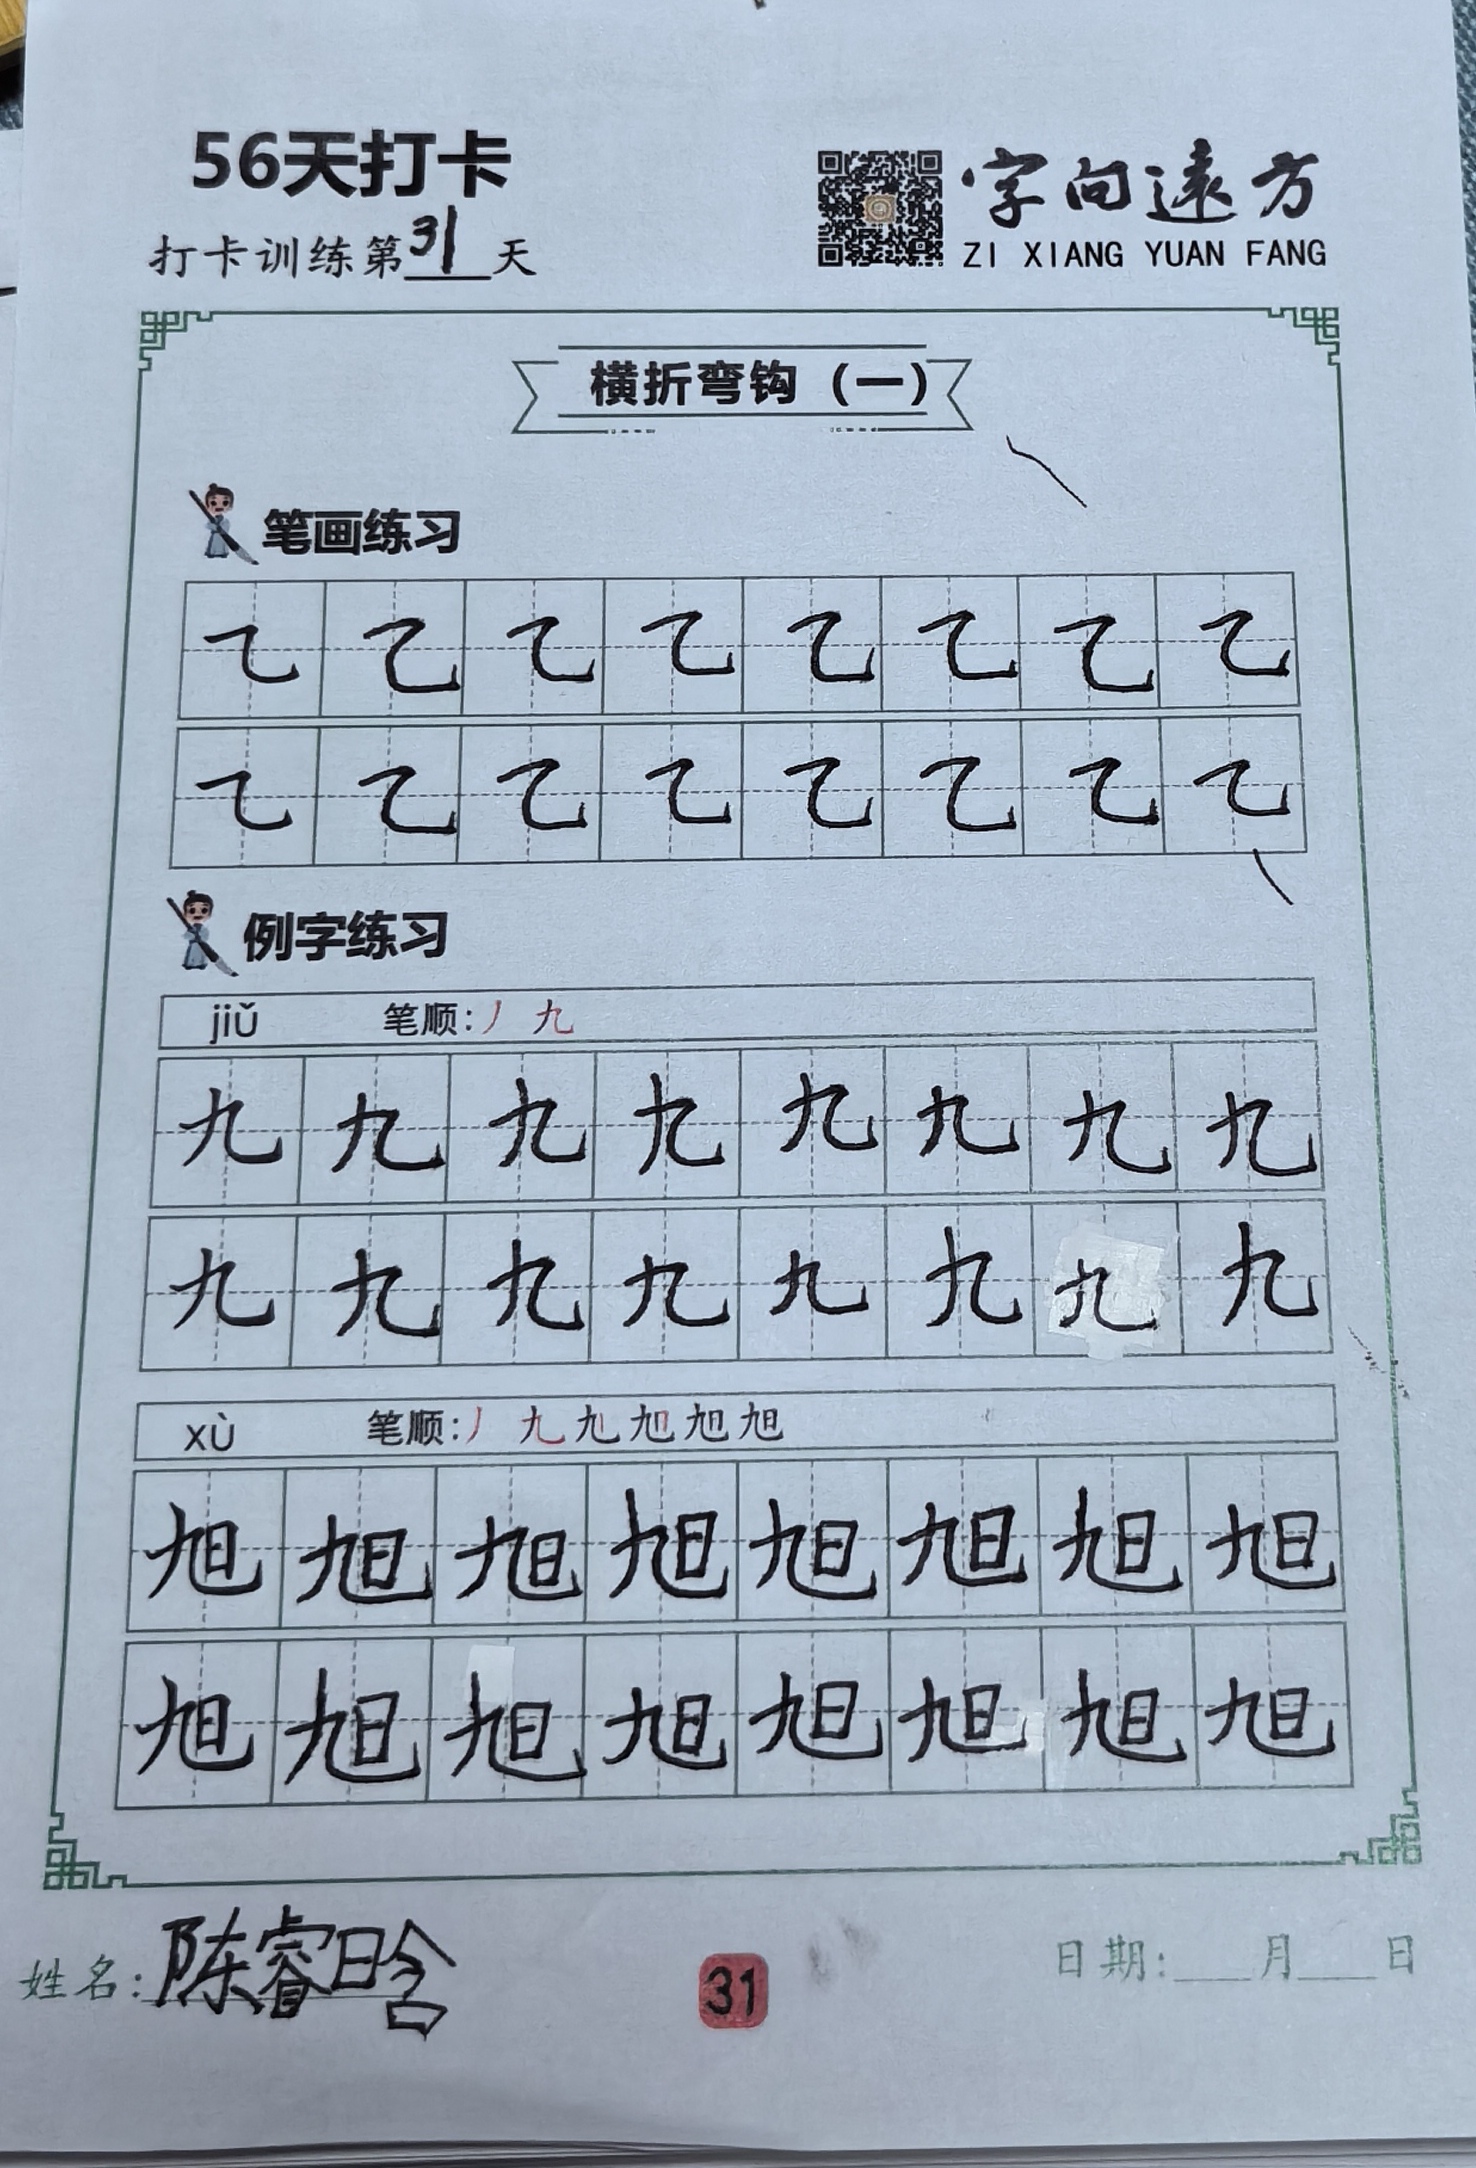 56天打卡
打卡训练第31天
字向遠方
ZI XIANG YUAN FANG
横折弯钩（一）
笔画练习
乁 乁 乁 乁 乁 乁 乁 乁
乁 乁 乁 乁 乁 乁 乁 乁
例字练习
jiǔ 笔顺:丿 九
九 九 九 九 九 九 九 九
九 九 九 九 九 九 九 九
xù 笔顺:丿 九 旭
旭 旭 旭 旭 旭 旭 旭 旭
旭 旭 旭 旭 旭 旭 旭 旭
姓名:陈睿晗
31
日期:___月___日